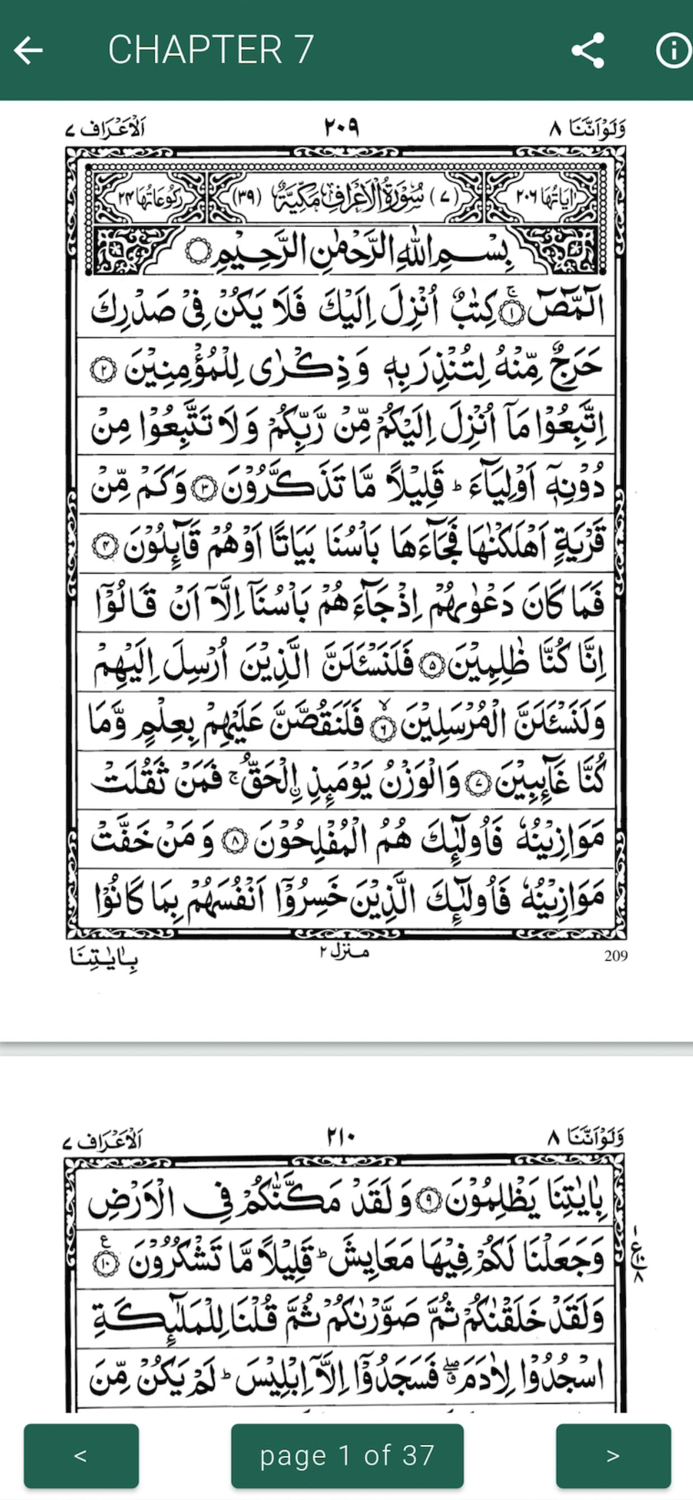 CHAPTER 7
وَلَوْاَنَّنَا ٨ ٢٠٩ اَلْاَعْرَاف ٧
اٰيَاتُهَا ٢٠٦ (٧) سُوْرَةُ الْاَعْرَافِ مَكِّيَّةٌ (٣٩) رُكُوْعَاتُهَا ٢٤
بِسْمِ اللّٰهِ الرَّحْمٰنِ الرَّحِيْمِ
الٓمّٓصٓ ۚ‏ ١ كِتٰبٌ اُنْزِلَ اِلَيْكَ فَلَا يَكُنْ فِىْ صَدْرِكَ
حَرَجٌ مِّنْهُ لِتُنْذِرَ بِهٖ وَذِكْرٰى لِلْمُؤْمِنِيْنَ ٢
اِتَّبِعُوْا مَاۤ اُنْزِلَ اِلَيْكُمْ مِّنْ رَّبِّكُمْ وَلَا تَتَّبِعُوْا مِنْ
دُوْنِهٖۤ اَوْلِيَآءَ ؕ قَلِيْلًا مَّا تَذَكَّرُوْنَ ٣ وَكَمْ مِّنْ
قَرْيَةٍ اَهْلَكْنٰهَا فَجَآءَهَا بَاْسُنَا بَيَاتًا اَوْهُمْ قَآئِلُوْنَ ٤
فَمَا كَانَ دَعْوٰىهُمْ اِذْ جَآءَهُمْ بَاْسُنَاۤ اِلَّاۤ اَنْ قَالُوْۤا
اِنَّا كُنَّا ظٰلِمِيْنَ ٥ فَلَنَسْئَلَنَّ الَّذِيْنَ اُرْسِلَ اِلَيْهِمْ
وَلَنَسْئَلَنَّ الْمُرْسَلِيْنَ ۙ ٦ فَلَنَقُصَّنَّ عَلَيْهِمْ بِعِلْمٍ وَّمَا
كُنَّا غَآئِبِيْنَ ٧ وَالْوَزْنُ يَوْمَئِذِ ۨالْحَقُّ ۚ فَمَنْ ثَقُلَتْ
مَوَازِيْنُهٗ فَاُولٰٓئِكَ هُمُ الْمُفْلِحُوْنَ ٨ وَمَنْ خَفَّتْ
مَوَازِيْنُهٗ فَاُولٰٓئِكَ الَّذِيْنَ خَسِرُوْۤا اَنْفُسَهُمْ بِمَا كَانُوْا
209 منزل ٢ بِاٰيٰتِنَا
وَلَوْاَنَّنَا ٨ ٢١٠ اَلْاَعْرَاف ٧
بِاٰيٰتِنَا يَظْلِمُوْنَ ٩ وَلَقَدْ مَكَّنّٰكُمْ فِى الْاَرْضِ
وَجَعَلْنَا لَكُمْ فِيْهَا مَعَايِشَ ؕ قَلِيْلًا مَّا تَشْكُرُوْنَ ١٠ ع
١ ع ١٠ ٨
وَلَقَدْ خَلَقْنٰكُمْ ثُمَّ صَوَّرْنٰكُمْ ثُمَّ قُلْنَا لِلْمَلٰٓئِكَةِ
اسْجُدُوْا لِاٰدَمَ ۖ ق فَسَجَدُوْۤا اِلَّاۤ اِبْلِيْسَ ؕ لَمْ يَكُنْ مِّنَ
< page 1 of 37 >